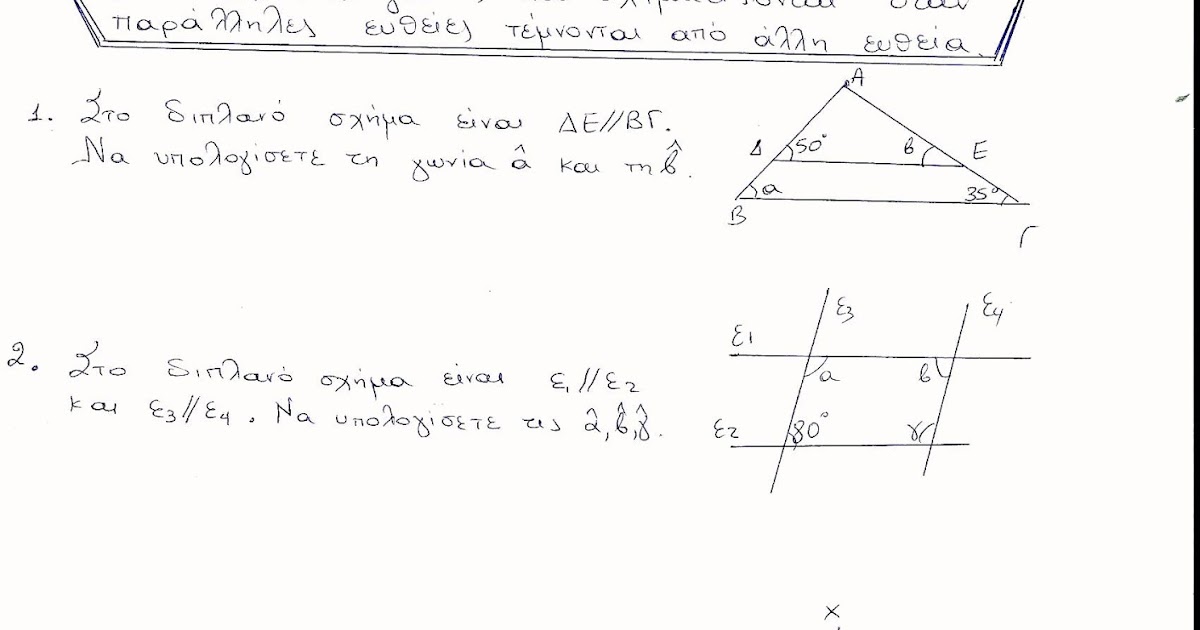 παράλληλες ευθείες τέμνονται από άλλη ευθεία.
1. Στο διπλανό σχήμα είναι ΔΕ//ΒΓ.
Να υπολογίσετε τη γωνία α̂ και τη β̂.
Α
Δ 50° β Ε
α 35°
Β Γ
2. Στο διπλανό σχήμα είναι ε1//ε2
και ε3//ε4. Να υπολογίσετε τις α̂,β̂,γ̂.
ε3 ε4
ε1
α β
ε2 80° γ
x